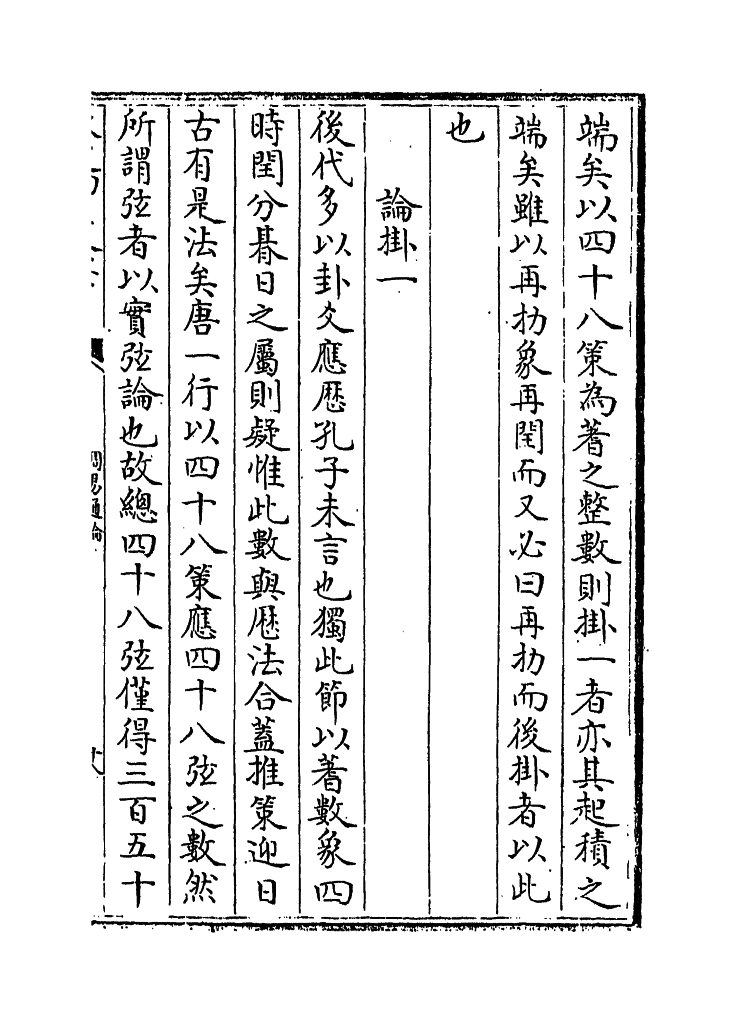 端矣以四十八策為蓍之整數則掛一者亦其起積之
端矣雖以再扐象再閏而又必曰再扐而後掛者以此
也
論掛一
後代多以卦爻應厯孔子未言也獨此節以蓍數象四
時閏分朞日之屬則疑惟此數與厯法合蓋推策迎日
古有是法矣唐一行以四十八策應四十八弦之數然
所謂弦者以實弦論也故總四十八弦僅得三百五十
周易通論
十八